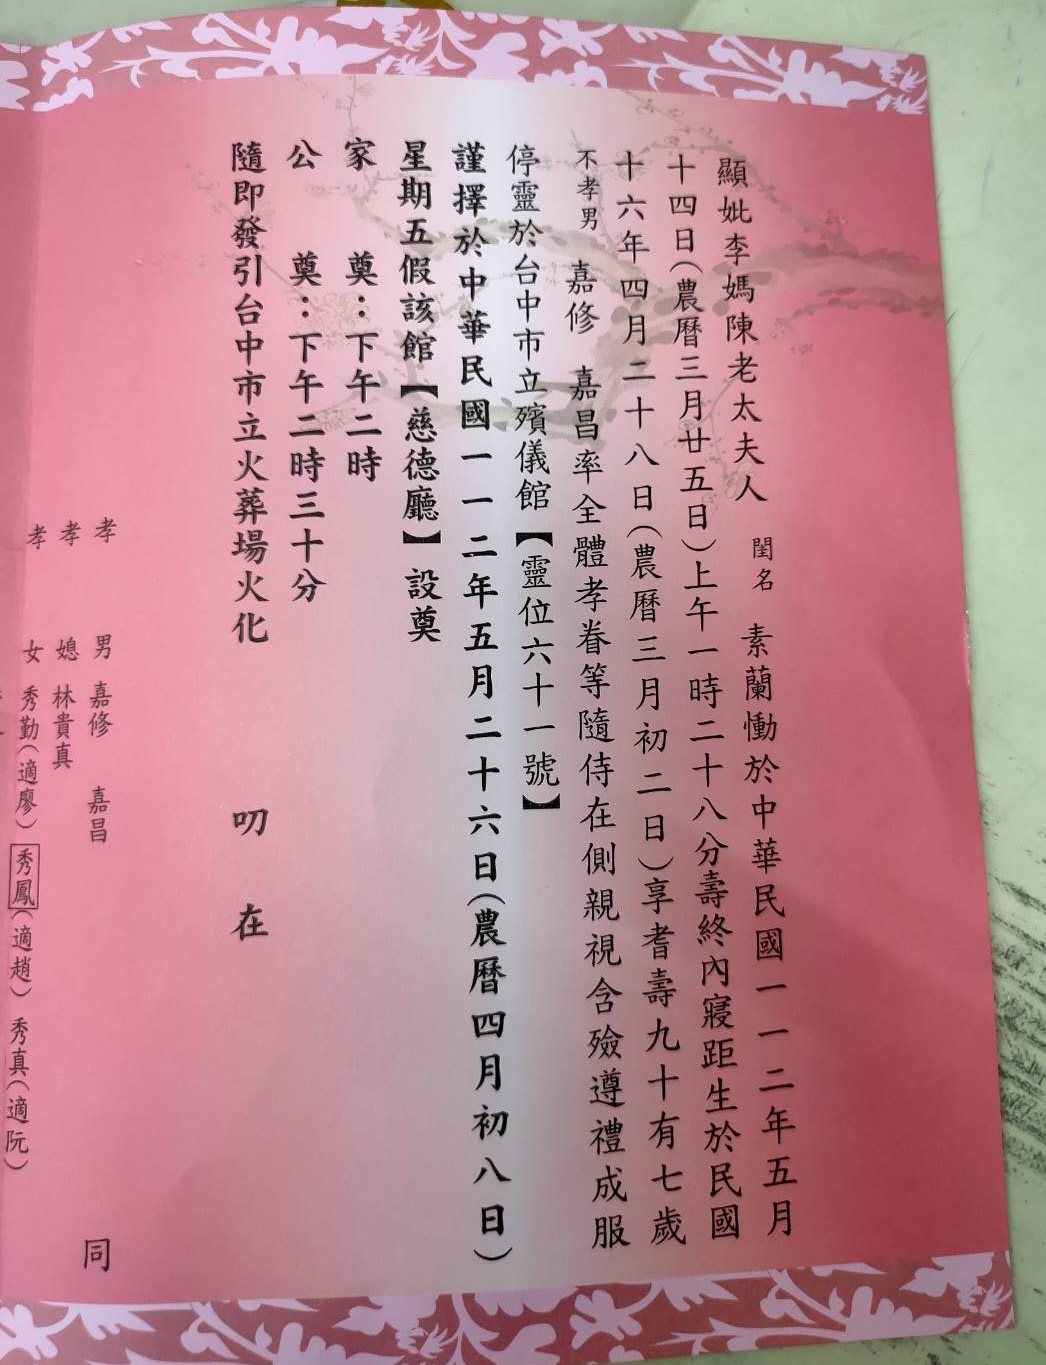 顯妣李媽陳老太夫人 閨名 素蘭慟於中華民國一一二年五月
十四日(農曆三月廿五日)上午一時二十八分壽終內寢距生於民國
十六年四月二十八日(農曆三月初二日)享耆壽九十有七歲
不孝男 嘉修 嘉昌率全體孝眷等隨侍在側親視含殮遵禮成服
停靈於台中市立殯儀館【靈位六十一號】
謹擇於中華民國一一二年五月二十六日(農曆四月初八日)
星期五假該館【慈德廳】設奠
家 奠:下午二時
公 奠:下午二時三十分
隨即發引台中市立火葬場火化 叨 在
孝 男 嘉修 嘉昌 同
孝 媳 林貴真
孝 女 秀勤(適廖) 秀鳳(適趙) 秀真(適阮)